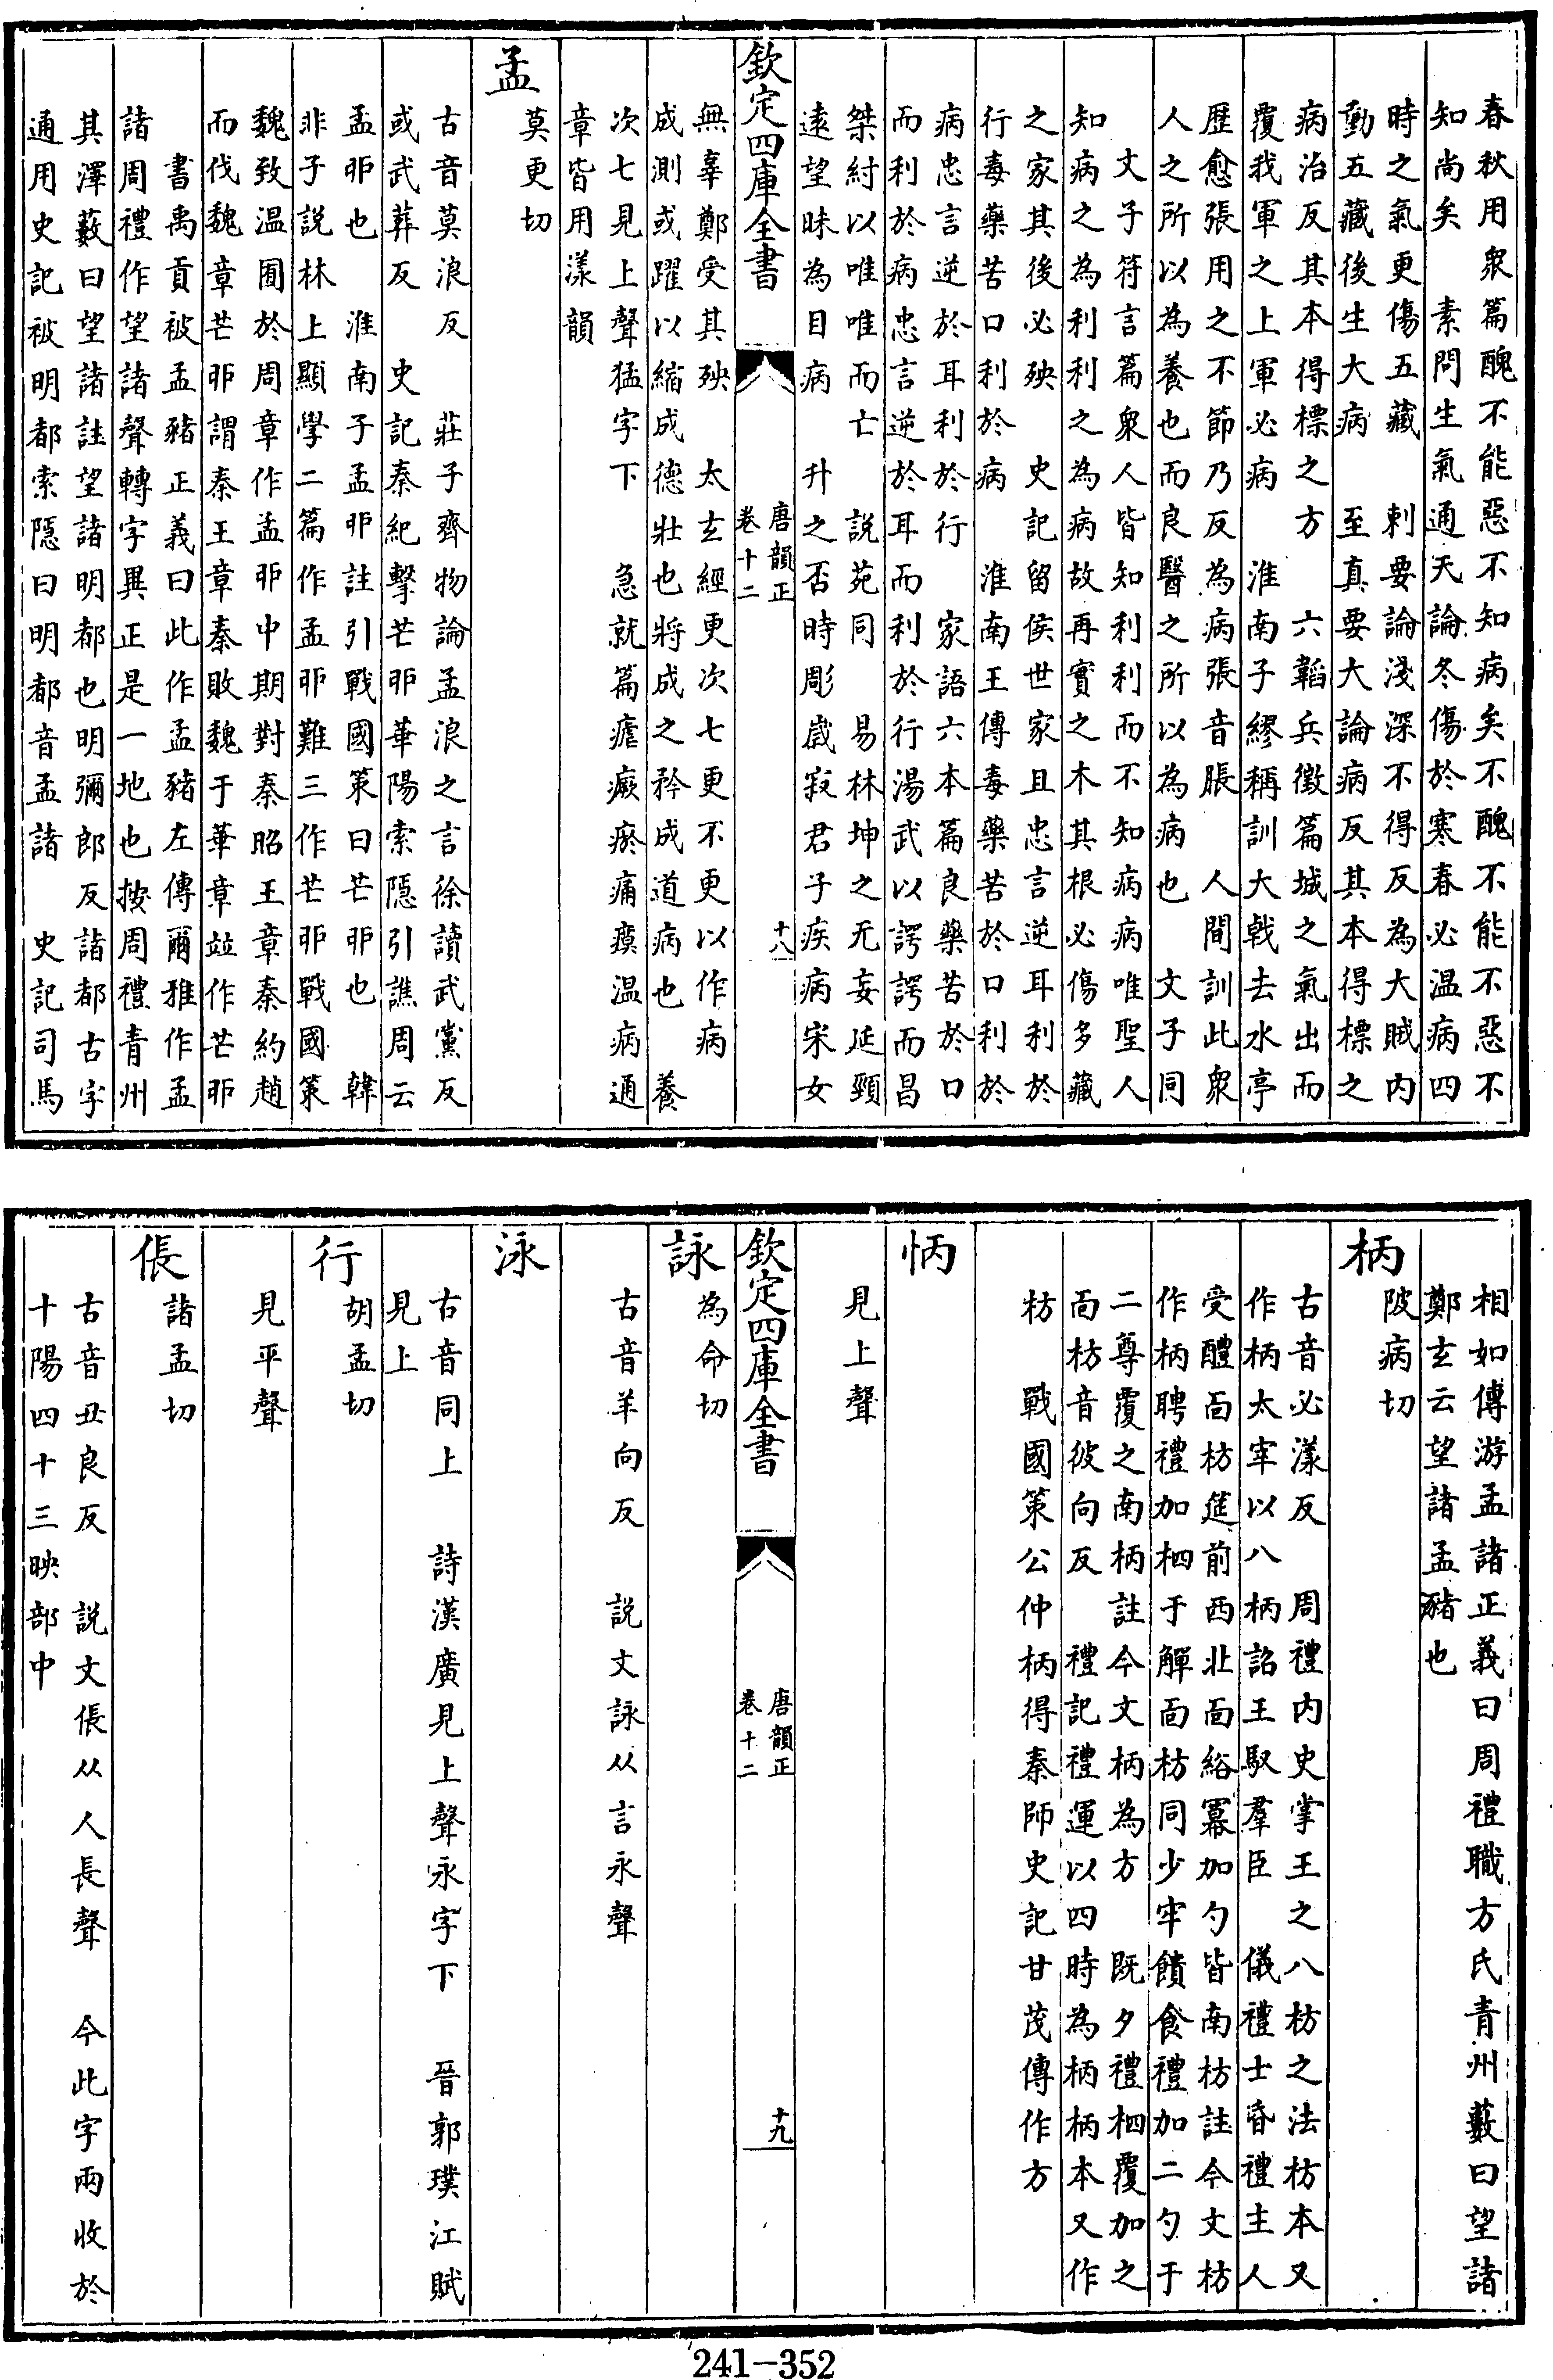 春秋用衆篇醜不能惡不知病矣不醜不能不惡不
知尚矣　素問生氣通天論冬傷於寒春必温病四
時之氣更傷五藏　刺要論淺深不得反為大賊内
動五藏後生大病　至真要大論病反其本得標之
病治反其本得標之方　六韜兵徵篇城之氣出而
覆我軍之上軍必病　淮南子繆稱訓大戟去水亭
歷愈張用之不節乃反為病張音脹　人間訓此衆
人之所以為養也而良醫之所以為病也　文子同
文子符言篇衆人皆知利利而不知病病唯聖人
知病之為利利之為病故再實之木其根必傷多藏
之家其後必殃　史記留侯世家且忠言逆耳利於
行毒藥苦口利於病　淮南王傳毒藥苦於口利於
病忠言逆於耳利於行　家語六本篇良藥苦於口
而利於病忠言逆於耳而利於行湯武以諤諤而昌
桀紂以唯唯而亡　説苑同　易林坤之无妄延頸
遠望昧為目病　升之否時彫歲寂君子疾病宋女
欽定四庫全書
唐韻正
卷十二
十八
無辜鄭受其殃　太玄經更次七更不更以作病
成測或躍以縮成德壯也將成之矜成道病也　養
次七見上聲猛字下　急就篇瘧瘚瘀痛瘼温病通
章皆用漾韻
孟
莫更切
古音莫浪反　莊子齊物論孟浪之言徐讀武黨反
或武葬反　史記秦紀擊芒卯華陽索隠引譙周云
孟卯也　淮南子孟卯註引戰國策曰芒卯也　韓
非子説林上顯學二篇作孟卯難三作芒卯戰國策
魏致温囿於周章作孟卯中期對秦昭王章秦約趙
而伐魏章芒卯謂秦王章秦敗魏于華章竝作芒卯
書禹貢被孟豬正義曰此作孟豬左傳爾雅作孟
諸周禮作望諸聲轉字異正是一地也按周禮青州
其澤藪曰望諸註望諸明都也明彌郎反諸都古字
通用史記被明都索隠曰明都音孟諸　史記司馬
相如傳游孟諸正義曰周禮職方氏青州藪曰望諸
鄭玄云望諸孟豬也
柄
陂病切
古音必漾反　周禮内史掌王之八枋之法枋本又
作柄太宰以八柄詔王馭羣臣　儀禮士昏禮主人
受醴面枋筵前西北面綌冪加勺皆南枋註今文枋
作柄聘禮加柶于觶面枋同少牢饋食禮加二勺于
二尊覆之南柄註今文柄為方　既夕禮柶覆加之
面枋音彼向反　禮記禮運以四時為柄柄本又作
枋　戰國策公仲柄得秦師史記甘茂傳作方
怲
見上聲
欽定四庫全書
唐韻正
卷十二
十九
詠
為命切
古音羊向反　説文詠从言永聲
泳
古音同上　詩漢廣見上聲永字下　晉郭璞江賦
見上
行
胡孟切
見平聲
倀
諸孟切
古音丑良反　説文倀从人長聲　今此字兩收於
十陽四十三映部中
241-352